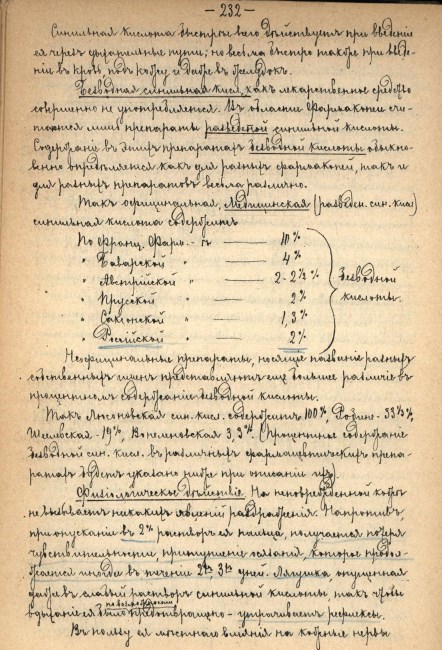 — 232 —
Синильная кислота быстрѣе всего дѣйствуетъ при введеніи
ея черезъ дыхательные пути; но весьма быстро также при введе-
ніи въ кровь, подъ кожу и даже въ желудокъ.
Безводная синильная кисл., какъ лекарственное средство
совершенно не употребляется. Въ области Фармакопеи счи-
таются лишь препараты разведенной синильной кислоты.
Содержаніе въ этихъ препаратахъ безводной кислоты обыкно-
венно опредѣляется какъ для разныхъ фармакопей, такъ и
для разныхъ препаратовъ весьма различно.
Такъ официнальная, Медицинская (разведен. син. кисл.)
синильная кислота содержитъ
По Франц. Фарм. - ъ — 10 %
" Баварской " — 4 %
" Австрійской " — 2 - 2½ %
" Прусской " — 2 %
" Саксонской " — 1,3 %
" Россійской " — 2 %
Безводной
кислоты.
Неофицинальные препараты, носящіе названіе разныхъ
собственныхъ именъ представляютъ еще большее различіе въ
процентномъ содержаніи безводной кислоты.
Такъ син. кисл. содержитъ 100%, 33⅓%,
Шеелевская - 19%, 3,3%. (Процентное содержаніе
безводной син. кисл. въ различныхъ фармацевтическихъ препа-
ратахъ будетъ указано ниже при описаніи ихъ).
Физіологическое дѣйствіе. На неповрежденной кожѣ
не вызываетъ никакихъ явленій раздраженія. Напротивъ,
при опусканіи въ 2% растворъ ея пальца, получается потеря
чувствительности, притупленіе осязанія, которое продол-
жается иногда въ теченіи 2хъ 3хъ дней. Лягушка, опущенная
даже въ слабый растворъ синильной кислоты, такъ чтобы
вдыханіе ея было предотвращено - утрачиваетъ рефлексы.
Въ пользу ея мѣстнаго вліянія на кожные нервы